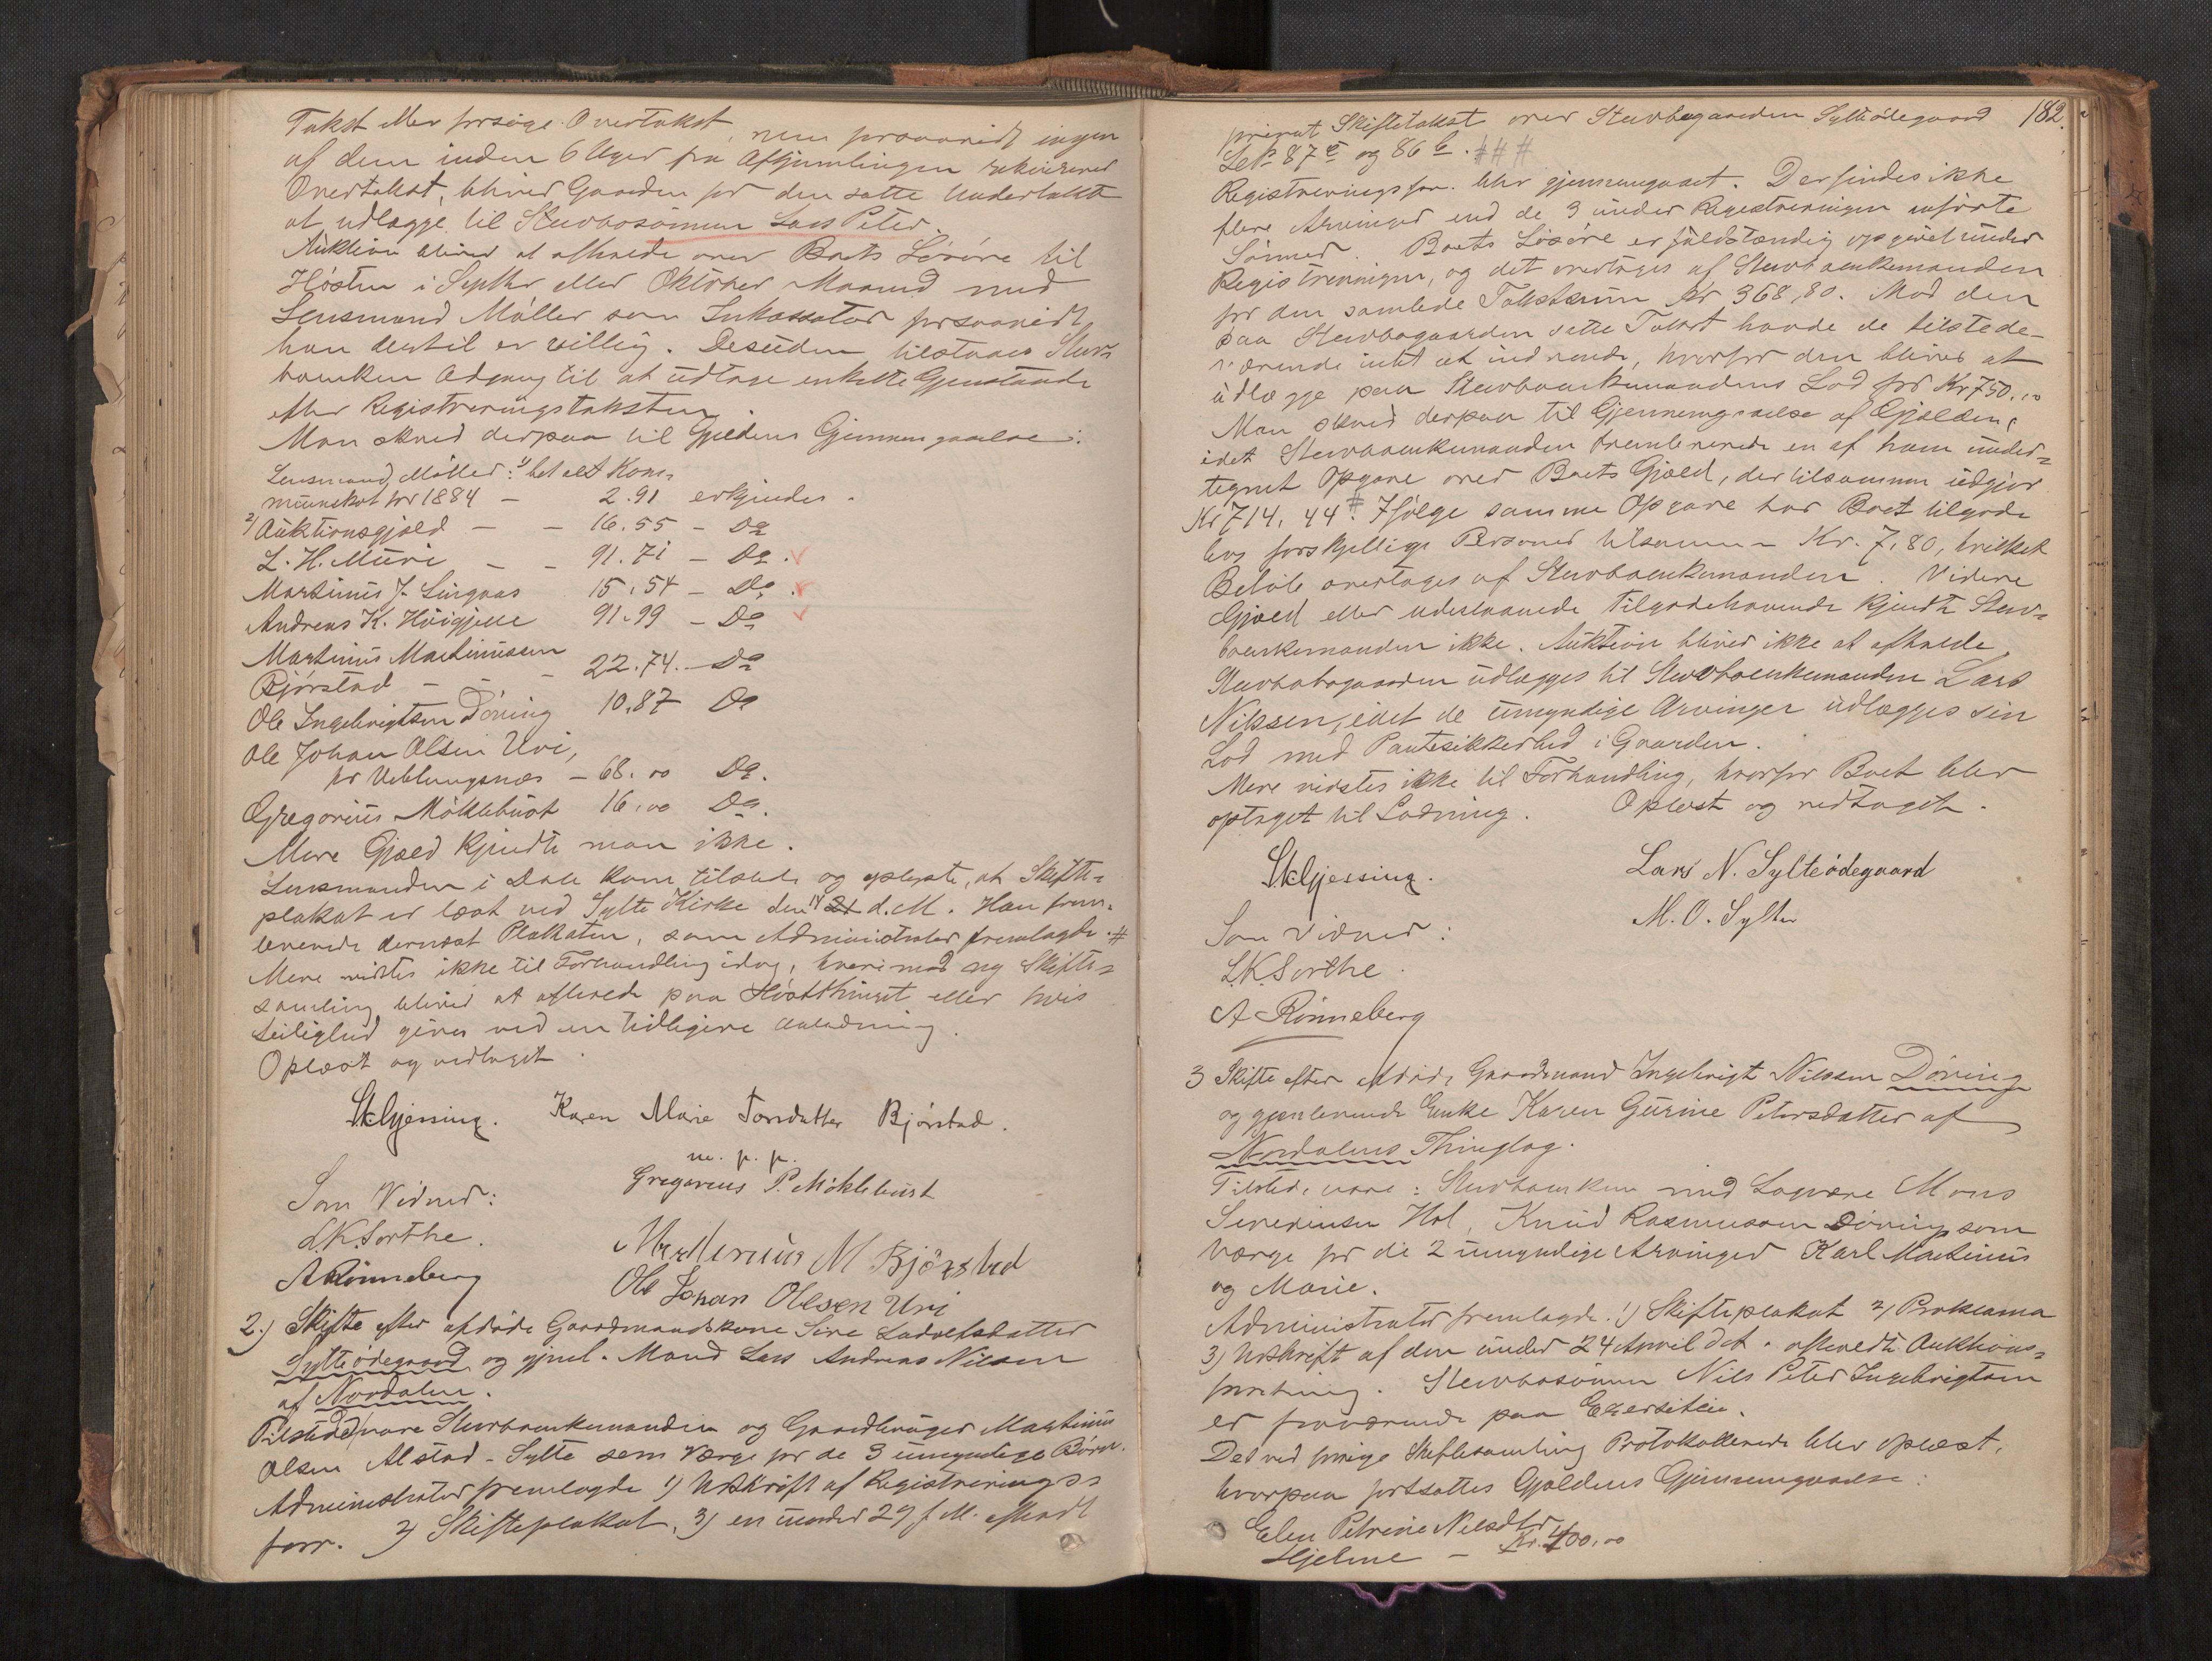 Takst eller forsøge Overtakst, men forsaavidt ingen
af dem inden 6 Uger fra Afhjemlingen rekvirerer
Overtakst, bliver Gaarden for den satte Undertakst
at udlægge til Stervbosønnen Lars Peter.
Auktion bliver at afholde over Boets Løsøre til
Høsten i Septbr eller Oktober Maaned med
Lensmand Møller som Inkassator forsaavidt
han dertil er villig. Desuden tilstaaes Sterv-
boenken Adgang til at udtage enkelte Gjenstande
efter Registreringstaksten.
Man skred derpaa til Gjeldens Gjennemgaaelse:
Lensmand Møller: 1) betalt Kom-
muneskat for 1884 — 2.91 erkjendes.
2) Auktionsgjæld — — 16.55 — Do
L. H. Muri — — 91.71 — Do.
Martinus J. Lingaas 15.54 — Do.
Andreas K. Høigjelle 91.99 — Do
Martinus Martinussen
Bjørstad — — — 22.74. — Do
Ole Ingebrigtsen Døving 10.87 Do
Ole Johan Olsen Uri,
pr Veblungsnæs — 68.00 Do.
Gregorius Møklebust 16.00 Do.
Mere Gjæld kjendte man ikke.
Lensmanden i Dale kom tilstede og oplyste, at Skifte-
plakat er læst ved Sylte Kirke den 14 21 d. M. Han frem-
leverede dernæst Plakaten, som Administrator fremlagde. #
Mere vidstes ikke til Forhandling idag, hvorimod ny Skifte-
samling bliver at afholde paa Høstthinget eller hvis
Leilighed gives ved en tidligere Anledning.
Oplæst og vedtaget.
Skljessing. Karen Marie Torsdatter Bjørstad.
m. p. p.
Som Vidner: Gregorius P. Møklebust
L.K. Sorthe. Martenius M Bjørstad
A Rønneberg Ole Johan Olesen Uri
2.) Skifte efter afdøde Gaardmandskone Sire Ludvigsdatter
Sylteødegaard og gjenl. Mand Lars Andreas Nilsen
af Nordalen.
Tilstede vare Stervboenkemanden og Gaardbruger Martinus
Olsen Alstad-Sylte som Værge for de 3 umyndige Børn.
Administrator fremlagde 1) Udskrift af Registrerings-
forr. 2) Skifteplakat, 3) en under 29 f. M. afholdt
182.
privat Skiftetakst over Stervbogaarden Sylteødegaard
LNo 87 c og 86 b. ###
Registreringsforr. blev gjennemgaaet. Der findes ikke
flere Arvinger end de 3 under Registreringen anførte
Sønner. Boets Løsøre er fuldstændig opgivet under
Registreringen, og det overtages af Stervboenkemanden
for den samlede Takstsum Kr 368,80. Mod den
paa Stervbogaarden satte Takst havde de tilstede-
værende intet at indvende, hvorfor den bliver at
udlægge paa Stervboenkemandens Lod for Kr 750.00
Man skred derpaa til Gjennemgaaelse af Gjælden,
idet Stervboenkemanden fremleverede en af ham under-
tegnet Opgave over Boets Gjæld, der tilsammen udgjør
Kr 714,44. # Ifølge samme Opgave har Boet tilgode
hos forskjellige Personer tilsammen Kr. 7,80, hvilket
Beløb overtages af Stervboenkemanden. Videre
Gjæld eller udestaaende Tilgodehavende kjendte Sterv-
boenkemanden ikke. Auktion bliver ikke at afholde.
Stervbogaarden udlægges til Stervboenkemanden Lars
Nilssen, idet de umyndige Arvinger udlægges sin
Lod med Pantesikkerhed i Gaarden.
Mere vidstes ikke til Forhandling, hvorfor Boet blev
optaget til Lodning. Oplæst og vedtaget.
Skljessing. Lars N. Sylteødegaard
Som Vidner: M. O. Sylte
L.K. Sorthe.
A Rønneberg
3 Skifte efter afdøde Gaardmand Ingebrigt Nilssen Døving
og gjenlevende Enke Karen Gurine Petersdatter af
Nordalens Thinglag.
Tilstede vare: Stervboenken med Lagværge Mons
Severinsen Hol, Knud Rasmussen Døving som
Værge for de 2 umyndige Arvinger Karl Martinus
og Marie.
Administrator fremlagde. 1) Skifteplakat 2) Proklama
3) Udskrift af den under 24 April d. A. afholdte Auktions-
forretning. Stervbosønnen Nils Peter Ingebrigtsen
er fraværende paa Exersitie.
Det ved forrige Skiftesamling Protokollerede blev oplæst,
hvorpaa fortsattes Gjældens Gjennemgaaelse:
Elen Petrine Nilsdtr
Hjelme — Kr. 400.00